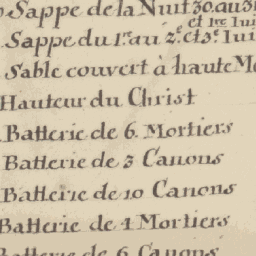 Sappe de la Nuit 30. au 3
et 1re Jui
Sappe du 1r. au 2e. et 3e. Jui
Sable couvert à haute M
Hauteur du Christ
Batterie de 6. Mortiers
Batterie de 3 Canons
Batterie de 10 Canons
Batterie de 4 Mortiers
Batterie de 6 Canons